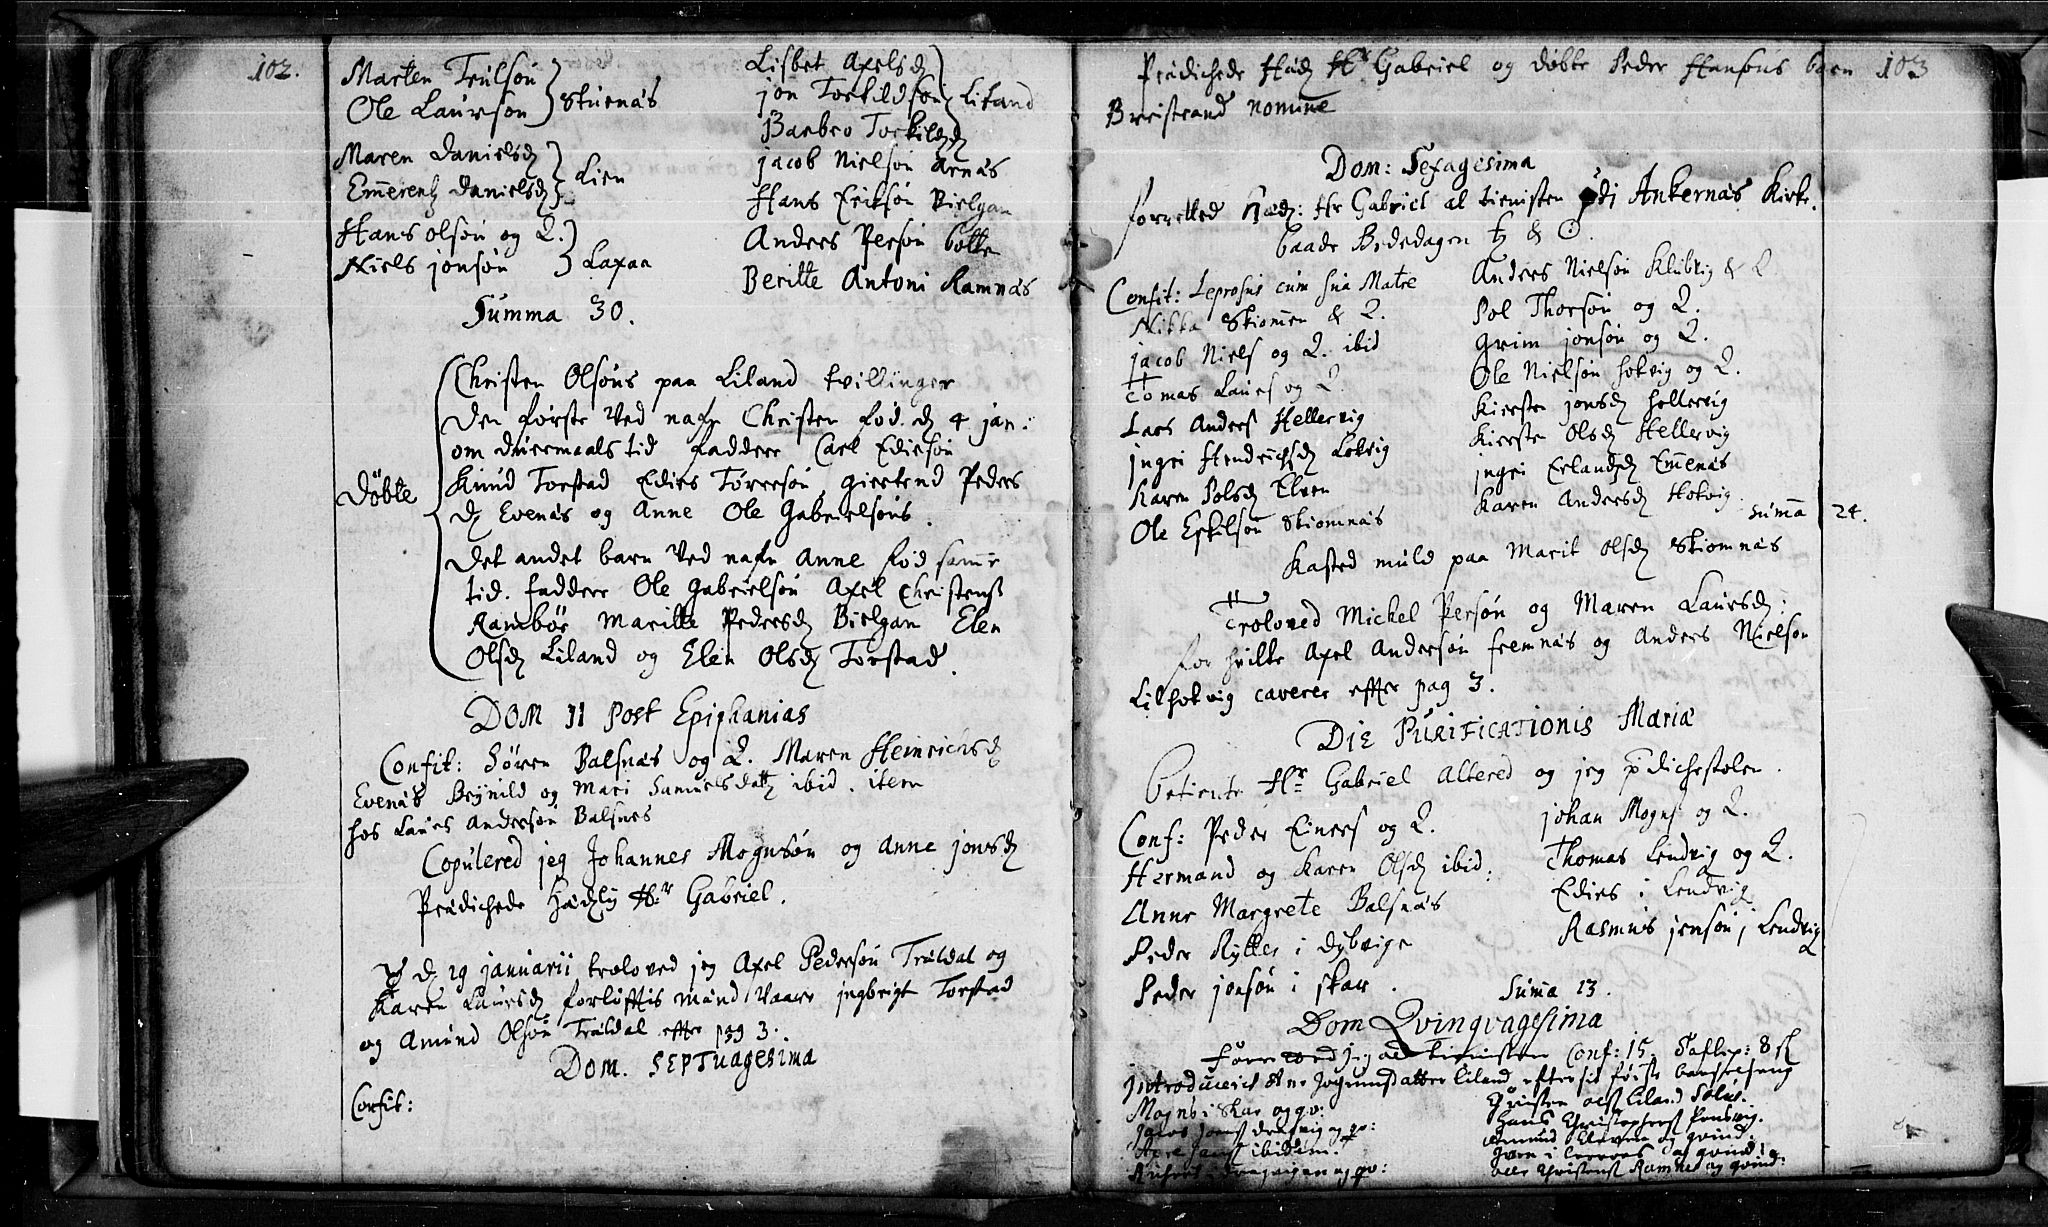 102.
Marten Trulsøn
Ole Laursøn } Stuenäs
Maren Danielsd
Emerentz Danielsd } Lien
Hans olsøn og Q.
Niels jonsøn } Laxaa
Summa 30.
Lisbet Axelsd
jon Torkildsøn } Liland
Barbro Torkildsd
jacob Nielsøn Arnäs
Hans Eriksøn Bielgan
Anders Persøn botte
Beritte Antoni Ramnäs
Døbte
Christen Olsøns paa Liland tvillinger
den første ved nafn Christen fød. d 4 jan:
om duermaals tid faddere Carl Ediesøn
Knud Torstad Edies Tørresøn, giertrud Peders
d Evenäs og Anne Ole Gabrielsøns.
Det andet barn ved nafn Anne fød samme
tid. faddere Ole Gabrielsøn Axel Christens
Ramboe Maritte Pedersd Bielgan Elen
Olsd Liland og Elen Olsd Torstad.
DOM II Post Epiphanias
Confit: Søren Balsnäs og Q. Maren Heinrichsd
Evenäs Brynild og Mari Samuelsdatt ibid. item
hos Laurs Andersøn Balsnes
Copulered jeg Johannes Mognsøn og Anne jonsd
Prädichede Hr Gabriel.
d 29 januarii troloved jeg Axel Pedersøn Träldal og
Karen Laursd forløfftis mänd vaare jngbrigt Torstad
og Amund Olsøn Träldal effter pag 3.
Dom. SEPTuagesima
Confit:
Prädichede Hr Gabriel og døbte Peder Hansøns barn
Breistrand nomine
103
Dom: Sexagesima
forretted Hr Gabriel al tienisten udj Ankernäs Kirke.
baade Bededagen ♄ & ☉.
Confit: Leprosus cum sua Matre
Nikka Skiomen & Q.
jacob Niels og Q. ibid
Tomas Laurs og Q.
Lars Anders Hellervig
jngri Hendrichsd Lokvig
Karen Polsd Elven
Ole Eskilsøn Skiomnäs
Anders Nielsøn Klubvig & Q
Pol Thorsøn og Q.
Grim jonsøn og Q.
Ole Nielsøn hokvig og Q.
Kierste jonsd hellervig
Kierste Olsd Hellervig
jngri Erlandsd Emenäs
Karen Andersd Hokvig.
Summa 24.
Kasted muld paa Marit olsd Skiomnäs
Troloved Michel Persøn og Maren Laursd:
for hvilke Axel Andersøn fremnäs og Anders Nielsøn
Lilhokvig caverer effter pag 3.
DIE PURIFICATIONIS Mariæ
betiente Hr Gabriel Altered og jeg pdichestolen.
Conf: Peder Einers og Q.
Hermand og Karen Olsd ibid:
Anne Margrete Balsnäs
Peder Rytter i dybvige
Peder jonsøn i skar.
johan Mogns og Q.
Thomas Lendvig og Q.
Edies i Lendvig
Rasmus jensøn j Lendvig
Q
Suma 13.
Dom Qvinqvagesima
forretted jeg al tienisten Conf: 15.
Introducerit Ane Liland efter sit første barselseng
Mogns i Skar og qv:
ibidem.
Hans Christophers